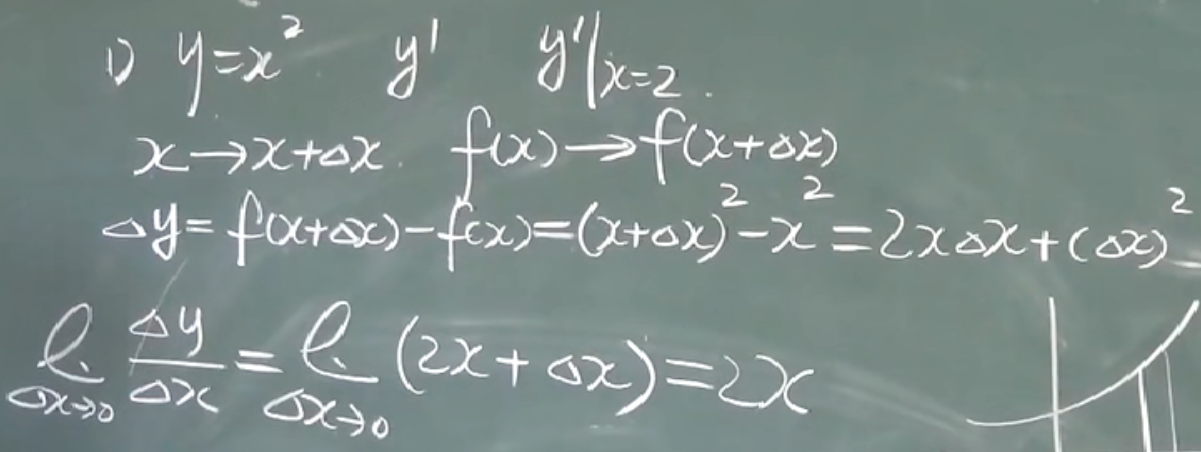 1) y=x² y' y'|x=2.
x→x+Δx. f(x)→f(x+Δx)
Δy=f(x+Δx)-f(x)=(x+Δx)²-x²=2xΔx+(Δx)²
l. Δx→0 Δy/Δx = l. Δx→0 (2x+Δx)=2x